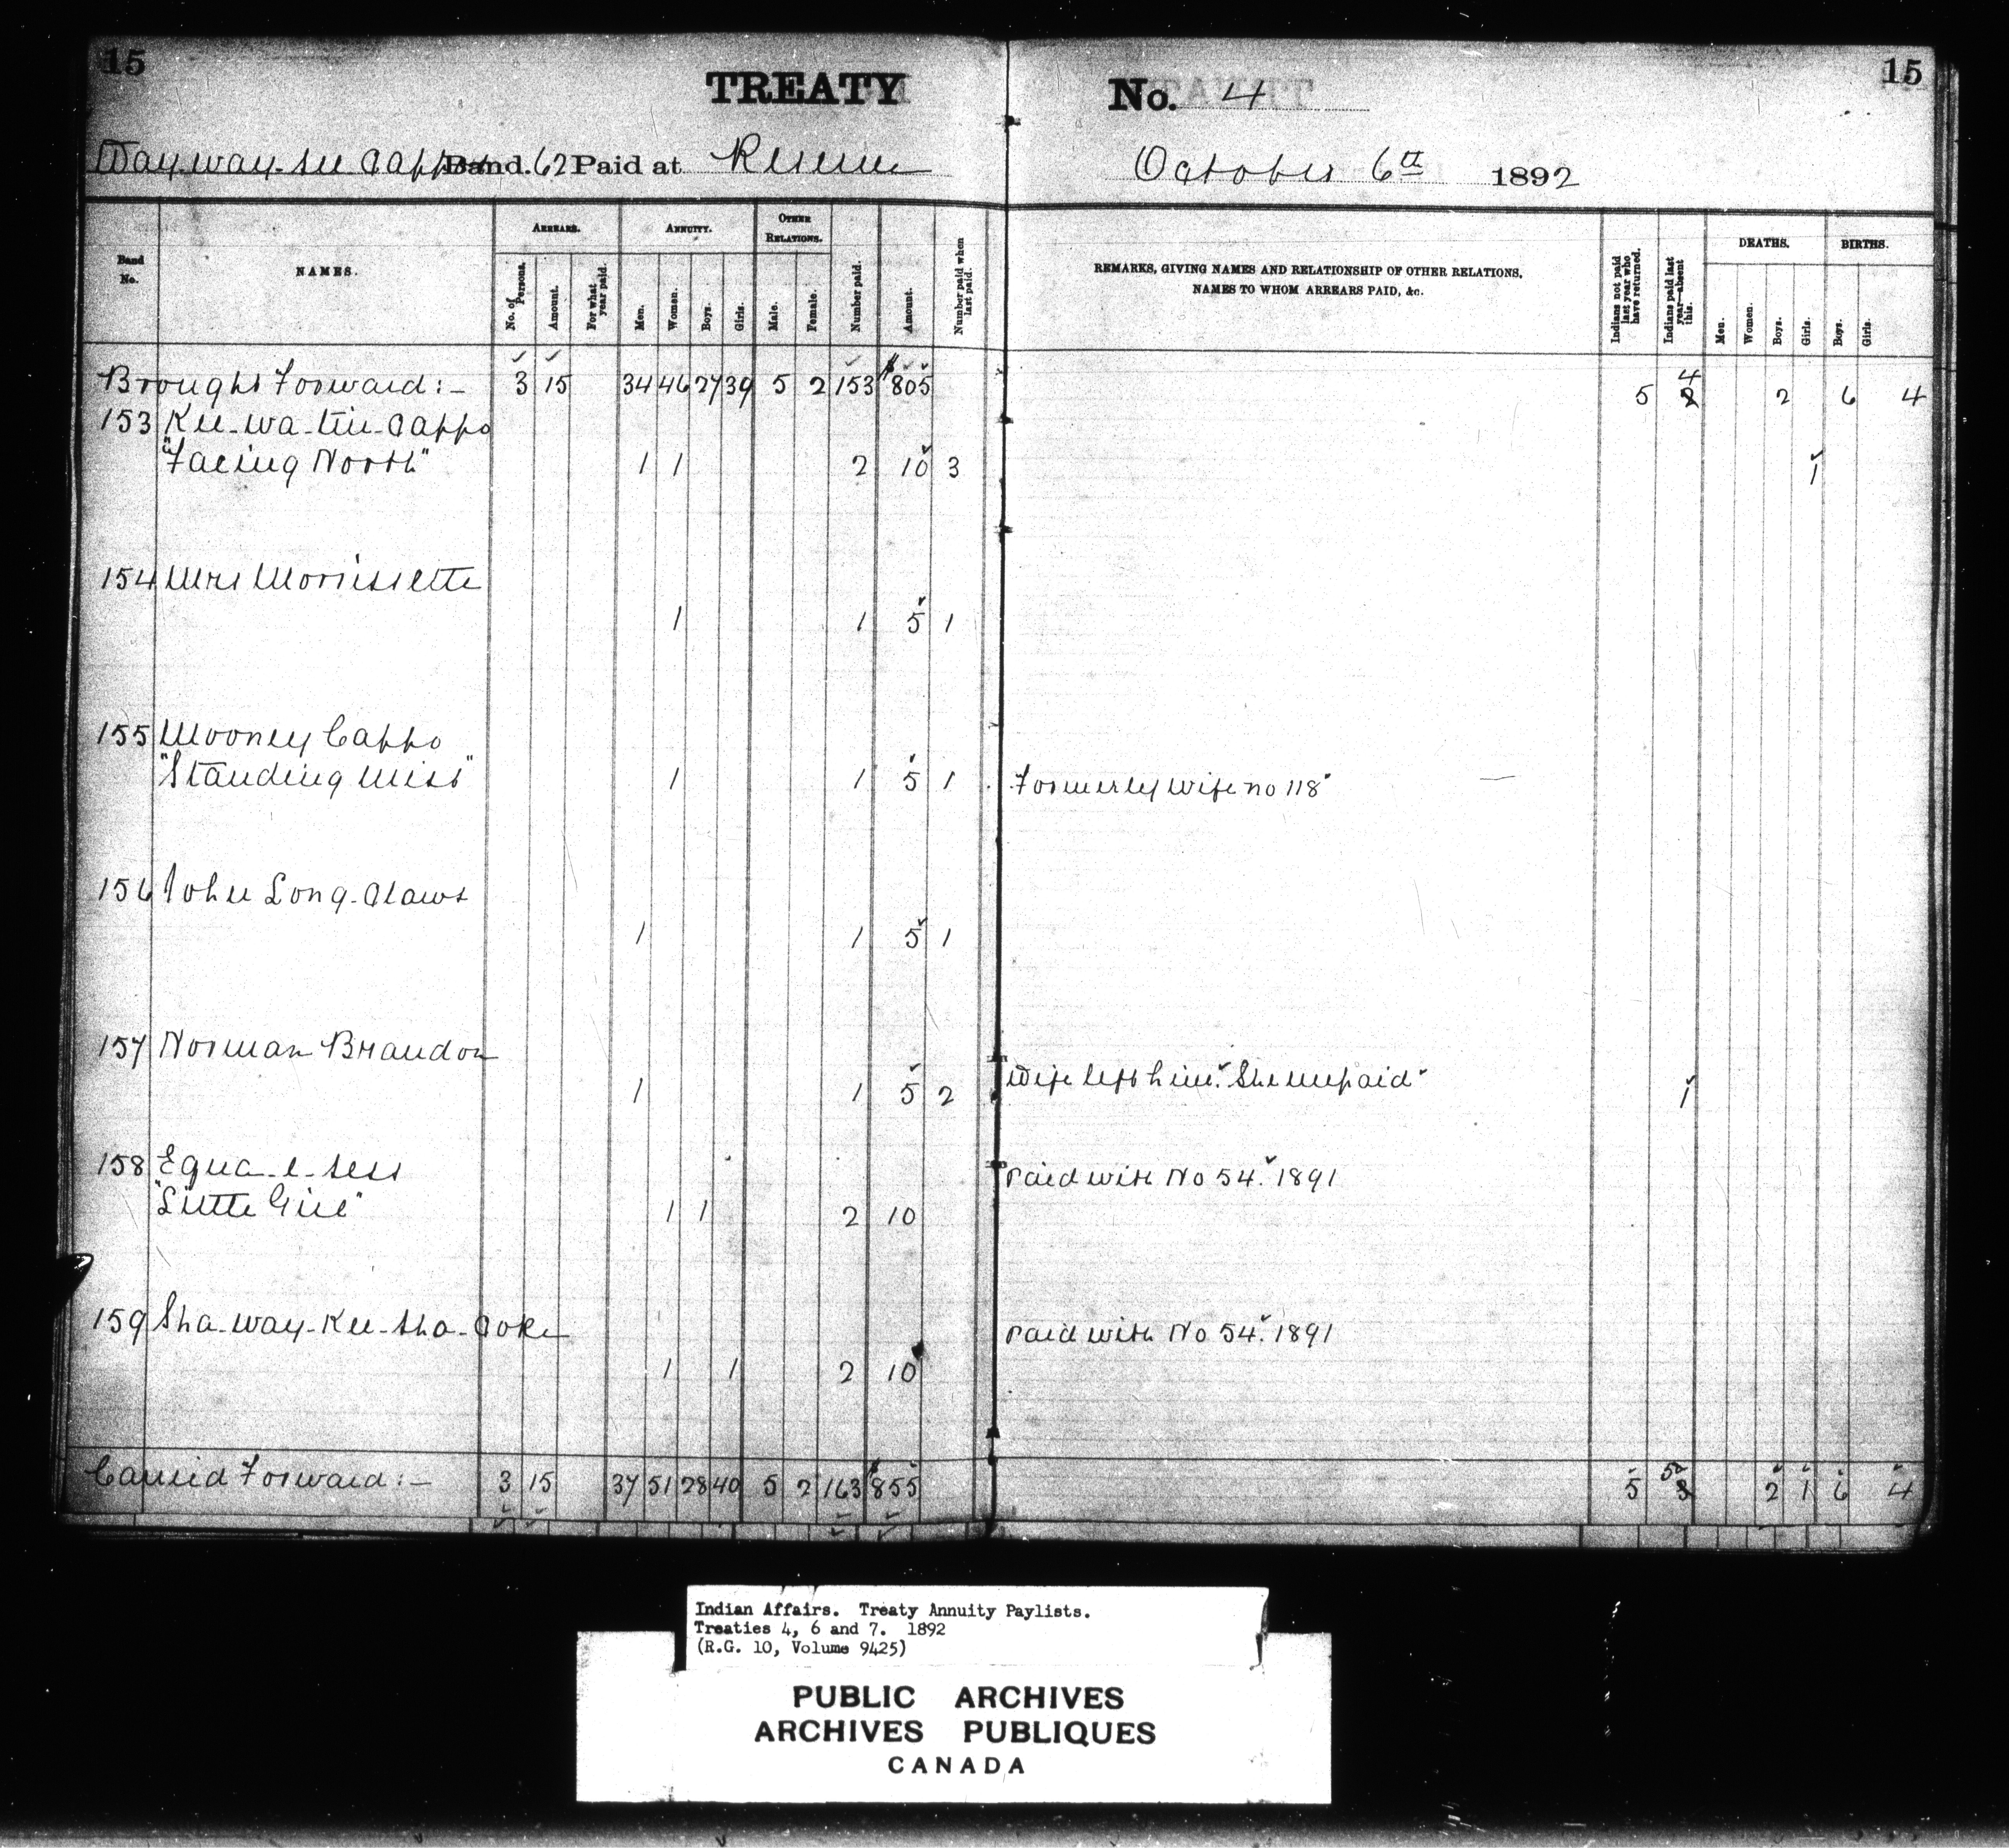 15
TREATY No. 4
15
Way-way-see Cappo Band. 62 Paid at Reserve October 6th 1892
Band No.
NAMES.
ARREARS.
No. of Persons.
Amount.
For what year paid.
ANNUITY.
Men.
Women.
Boys.
Girls.
OTHER RELATIONS.
Male.
Female.
Number paid.
Amount.
Number paid when last paid.
REMARKS, GIVING NAMES AND RELATIONSHIP OF OTHER RELATIONS,
NAMES TO WHOM ARREARS PAID, &c.
Indians not paid last year who have returned.
Indians paid last year—absent this.
DEATHS.
Men.
Women.
Boys.
Girls.
BIRTHS.
Boys.
Girls.
Brought Forward:- 3 15 34 46 27 39 5 2 153 $805 5 4 2 6 4
153 Kee-wa-tin-Cappo
"Facing North" 1 1 2 10 3 1
154 Mrs Morrissette
1 1 5 1
155 Mooney Cappo
"Standing Miss" 1 1 5 1 Formerly wife no 118
156 John Long-Claws
1 1 5 1
157 Norman Brandon
1 1 5 2 Wife left him. She unpaid 1
158 Equa-e-sess Paid with No 54. 1891
"Little Girl" 1 1 2 10
159 Sha-way-Kee-sha-Coke Paid with No 54. 1891
1 1 2 10
Carried Forward:- 3 15 37 51 28 40 5 2 163 $855 5 5 2 1 6 4
Indian Affairs. Treaty Annuity Paylists.
Treaties 4, 6 and 7. 1892
(R.G. 10, Volume 9425)
PUBLIC ARCHIVES
ARCHIVES PUBLIQUES
CANADA